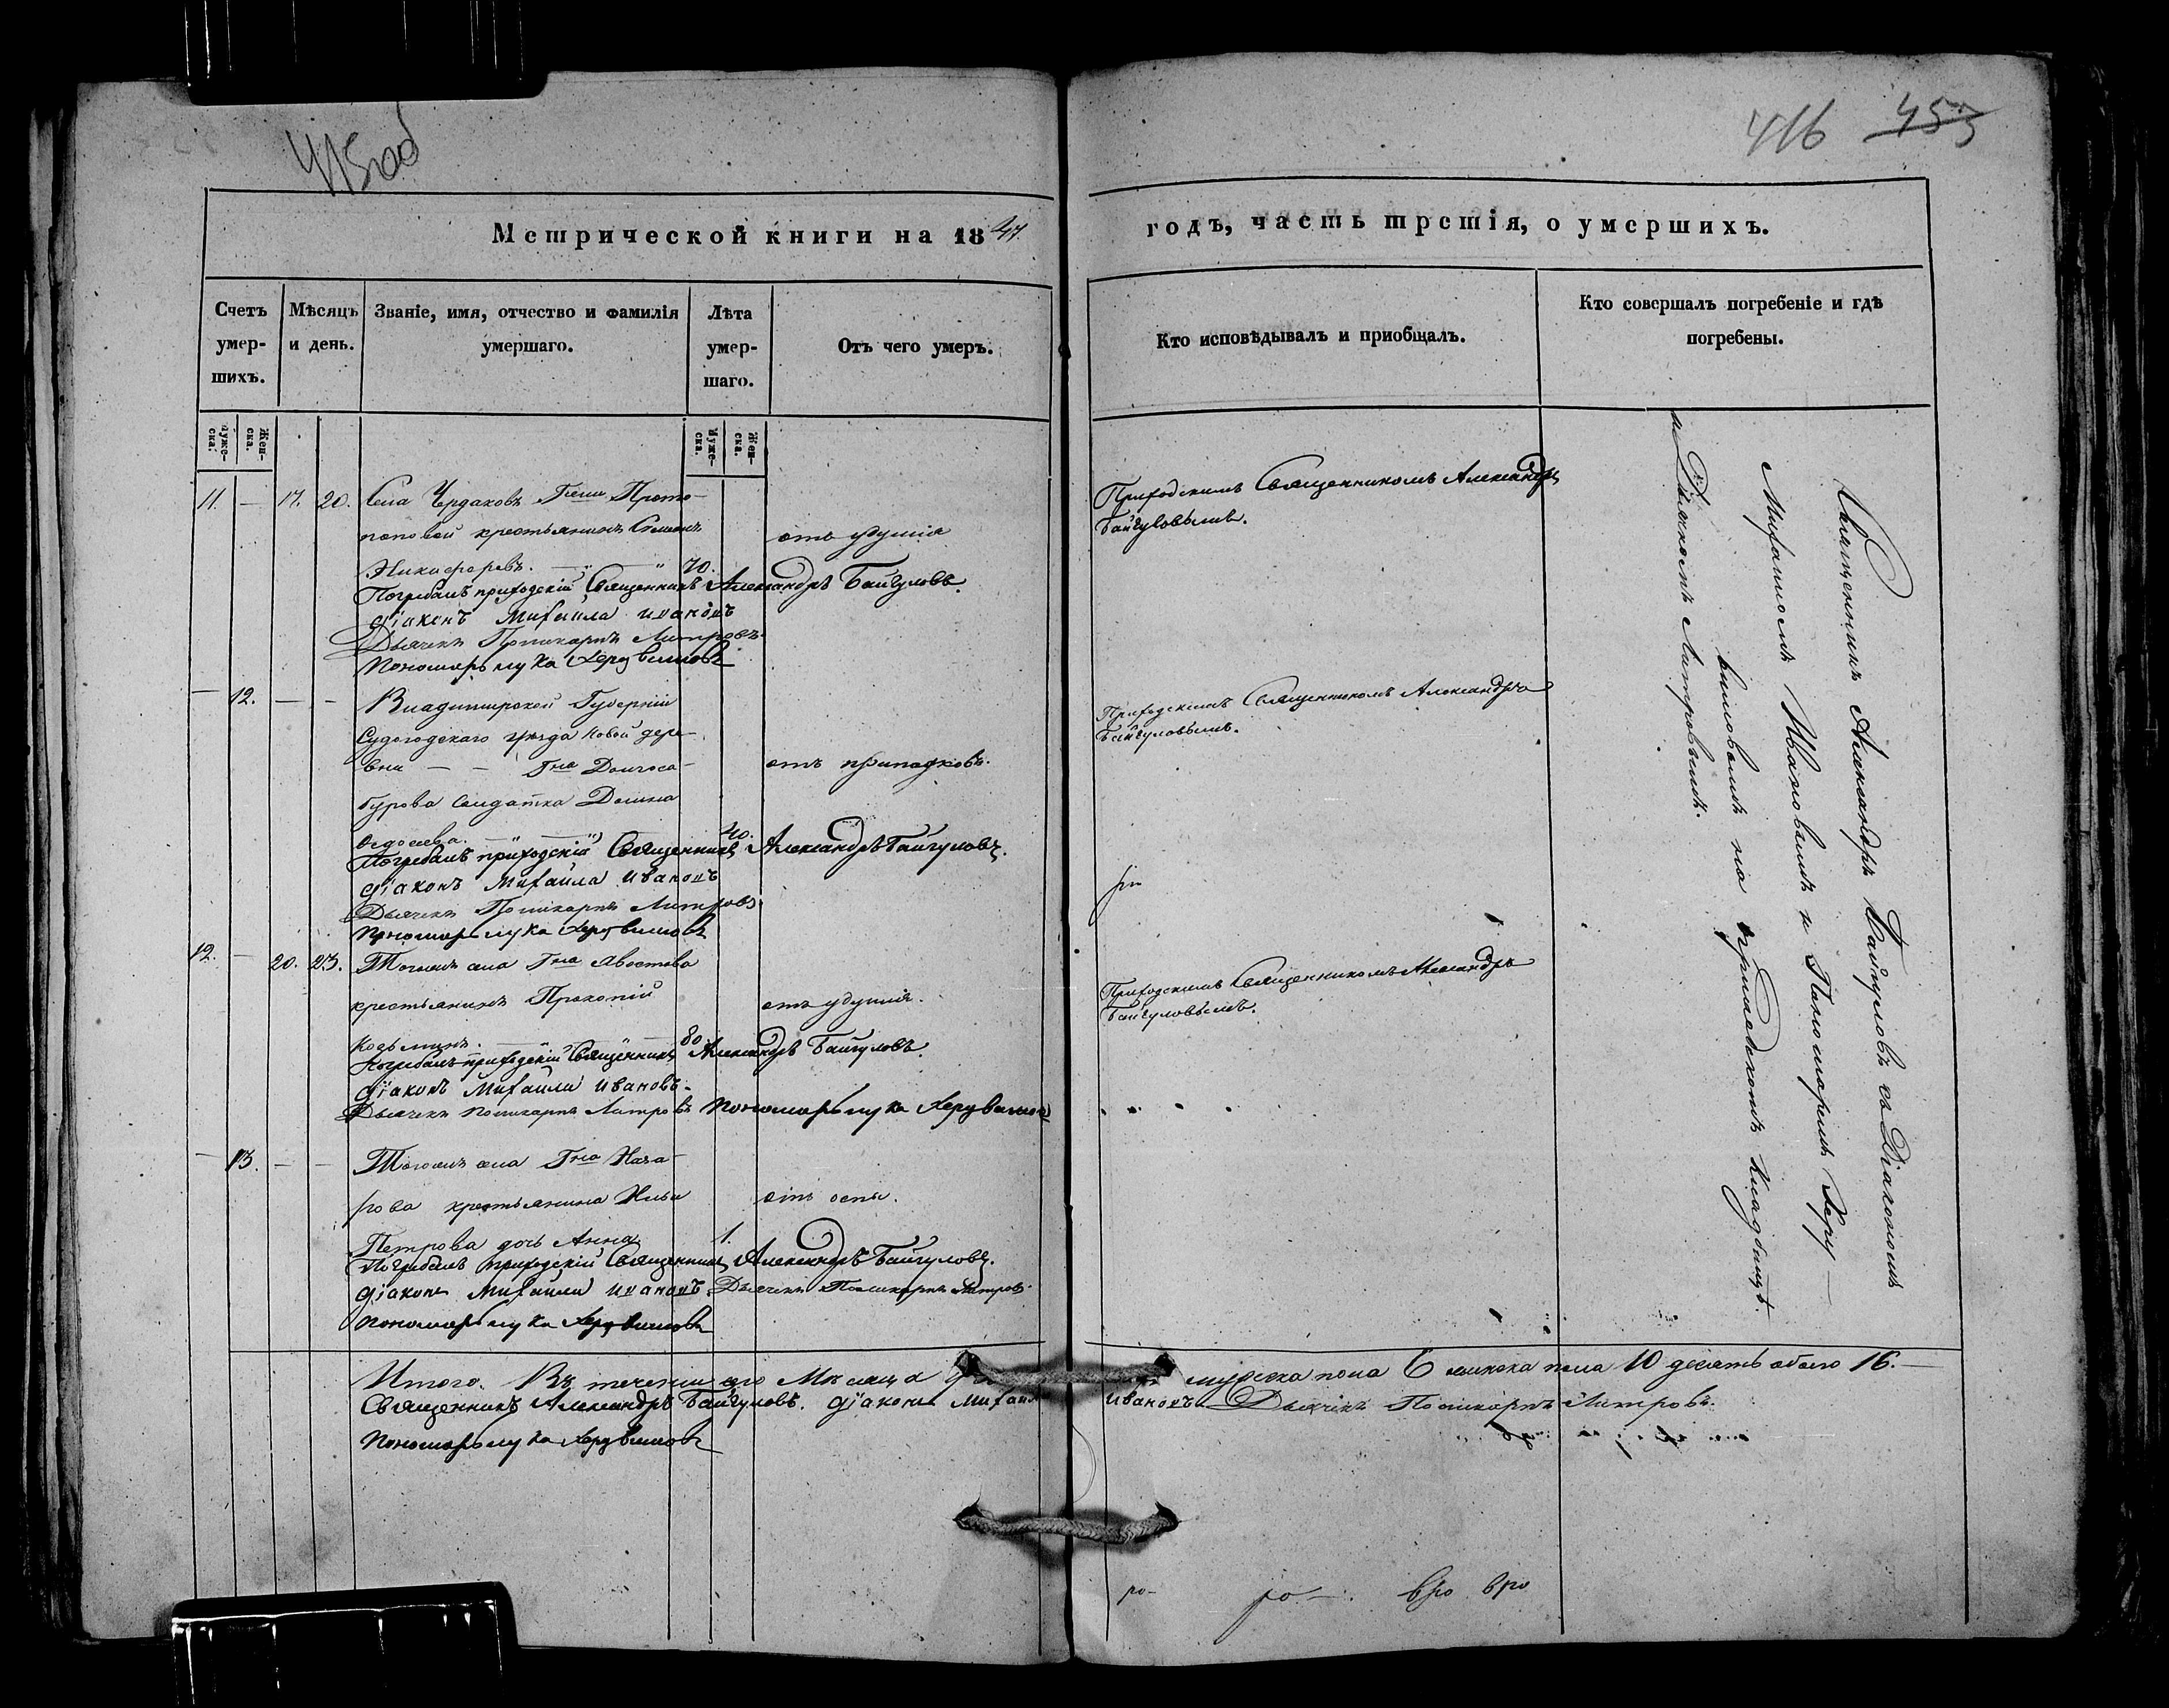 415 об
416 453
Метрической книги на 1847.
годъ, часть третія, о умершихъ.
Счетъ умер-шихъ.
Мѣсяцъ и день.
Званіе, имя, отчество и фамилія умершаго.
Лѣта умер-шаго.
Отъ чего умеръ.
Кто исповѣдывалъ и приобщалъ.
Кто совершалъ погребеніе и гдѣ погребены.
Муже-ска.
Жен-ска.
Муже-ска.
Жен-ска.
11. — 17. 20. Села Чердаковъ Гжи Прото-
поповой крестьянинъ Симеонъ отъ удушія
Никифоровъ. 70.
Погребалъ приходскій Священникъ Александръ Байгуловъ.
діаконъ Михаила ивановъ
Дьячекъ Поликарпъ Литровъ.
Пономарь лука Херувимовъ
Приходскимъ Священникомъ Александръ
Байгуловымъ.
— 12. — — Владимирской Губерніи
Судогодскаго уѣзда Новой дере-
вни — — Гна Долгоса- отъ припадковъ.
бурова Солдатка Домна
Федосеева. 40.
Погребалъ приходскій Священникъ Александръ Байгуловъ.
діаконъ Михаила Ивановъ
Дьячекъ Поликарпъ Литровъ.
Пономарь лука Херувимовъ
Приходскимъ Священникомъ Александръ
Байгуловымъ.
12. — 20. 23. Тогожъ села Гна Авостова
крестьянинъ Прокопій отъ удушія.
Козьминъ. 80.
Погребалъ приходскій Священникъ Александръ Байгуловъ.
діаконъ Михаила Ивановъ.
Дьячекъ Поликарпъ Литровъ Пономарь лука Херувимовъ
Приходскимъ Священникомъ Александръ
Байгуловымъ.
— 13. — — Тогожъ села Гна Наза-
рова крестьянина Ильи отъ оспы.
Петрова дочь Анна 1.
Погребалъ приходскій Священникъ Александръ Байгуловъ.
діаконъ Михаила ивановъ. Дьячекъ Поликарпъ Литровъ.
Пономарь лука Херувимовъ
Священникъ Александръ Байгуловъ съ Діакономъ
Михаиломъ Ивановымъ и Пономаремъ Херу-
вимовымъ на приходскомъ кладбищѣ.
и Дьячкомъ Литровымъ.
Итого. Въ теченіи сего Мѣсяца мужеска пола 6 женска пола 10 десять обоего 16.
Священникъ Александръ Байгуловъ. діаконъ Михаила Ивановъ Дьячекъ Поликарпъ Литровъ.
Пономарь лука Херувимовъ
ро- ро- вро вро